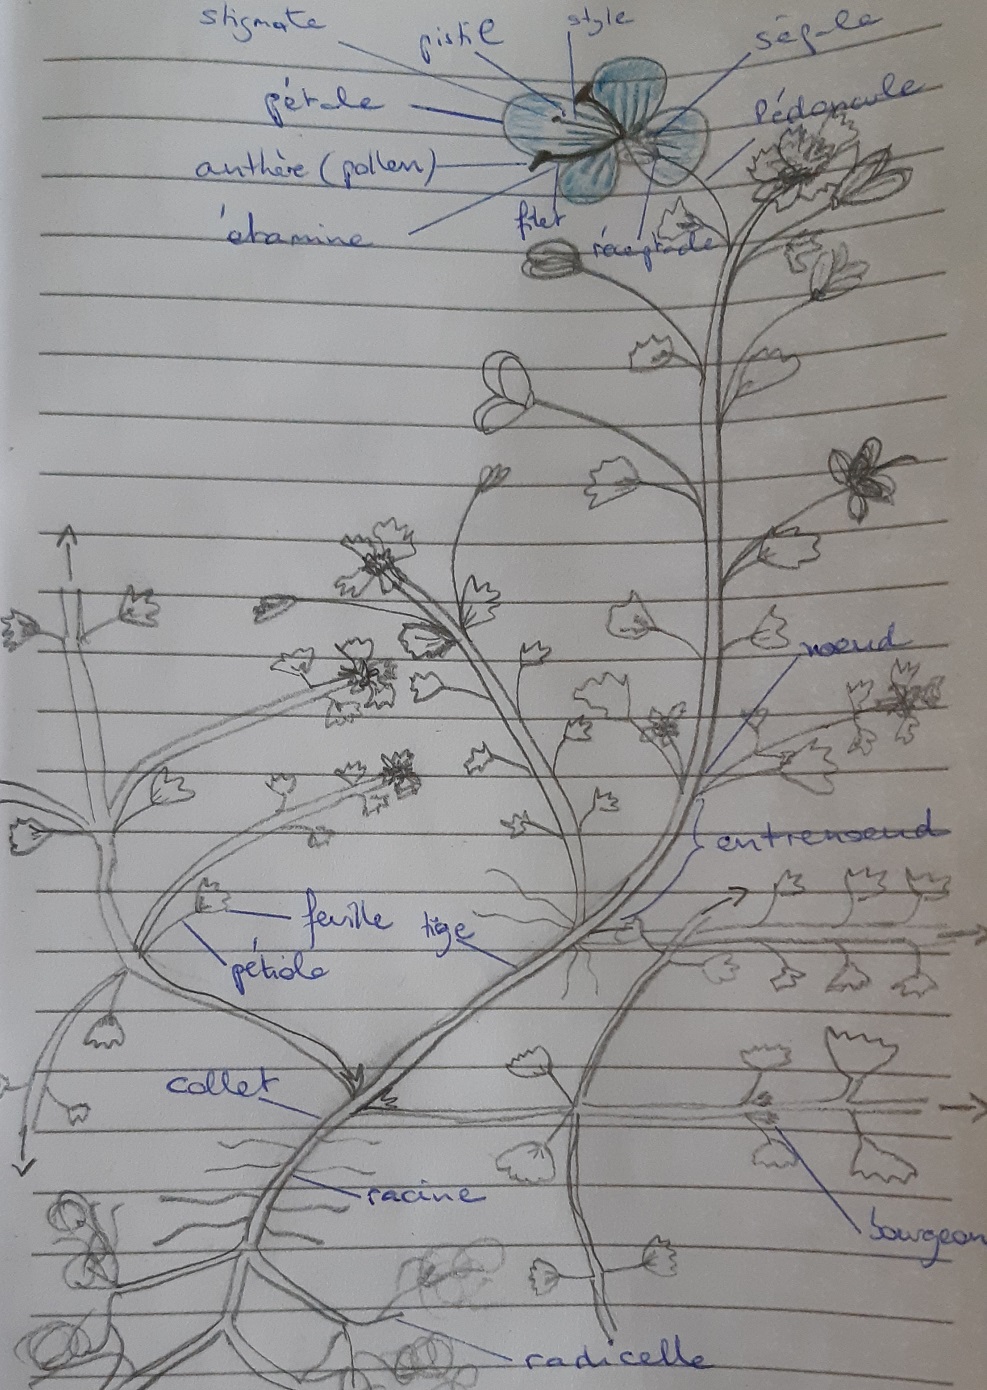 stigmate
pistil
style
sépale
pétale
Pédoncule
anthère (pollen)
étamine
filet
réceptacle
noeud
entrenoeud
feuille
tige
pétiole
collet
racine
bourgeon
radicelle